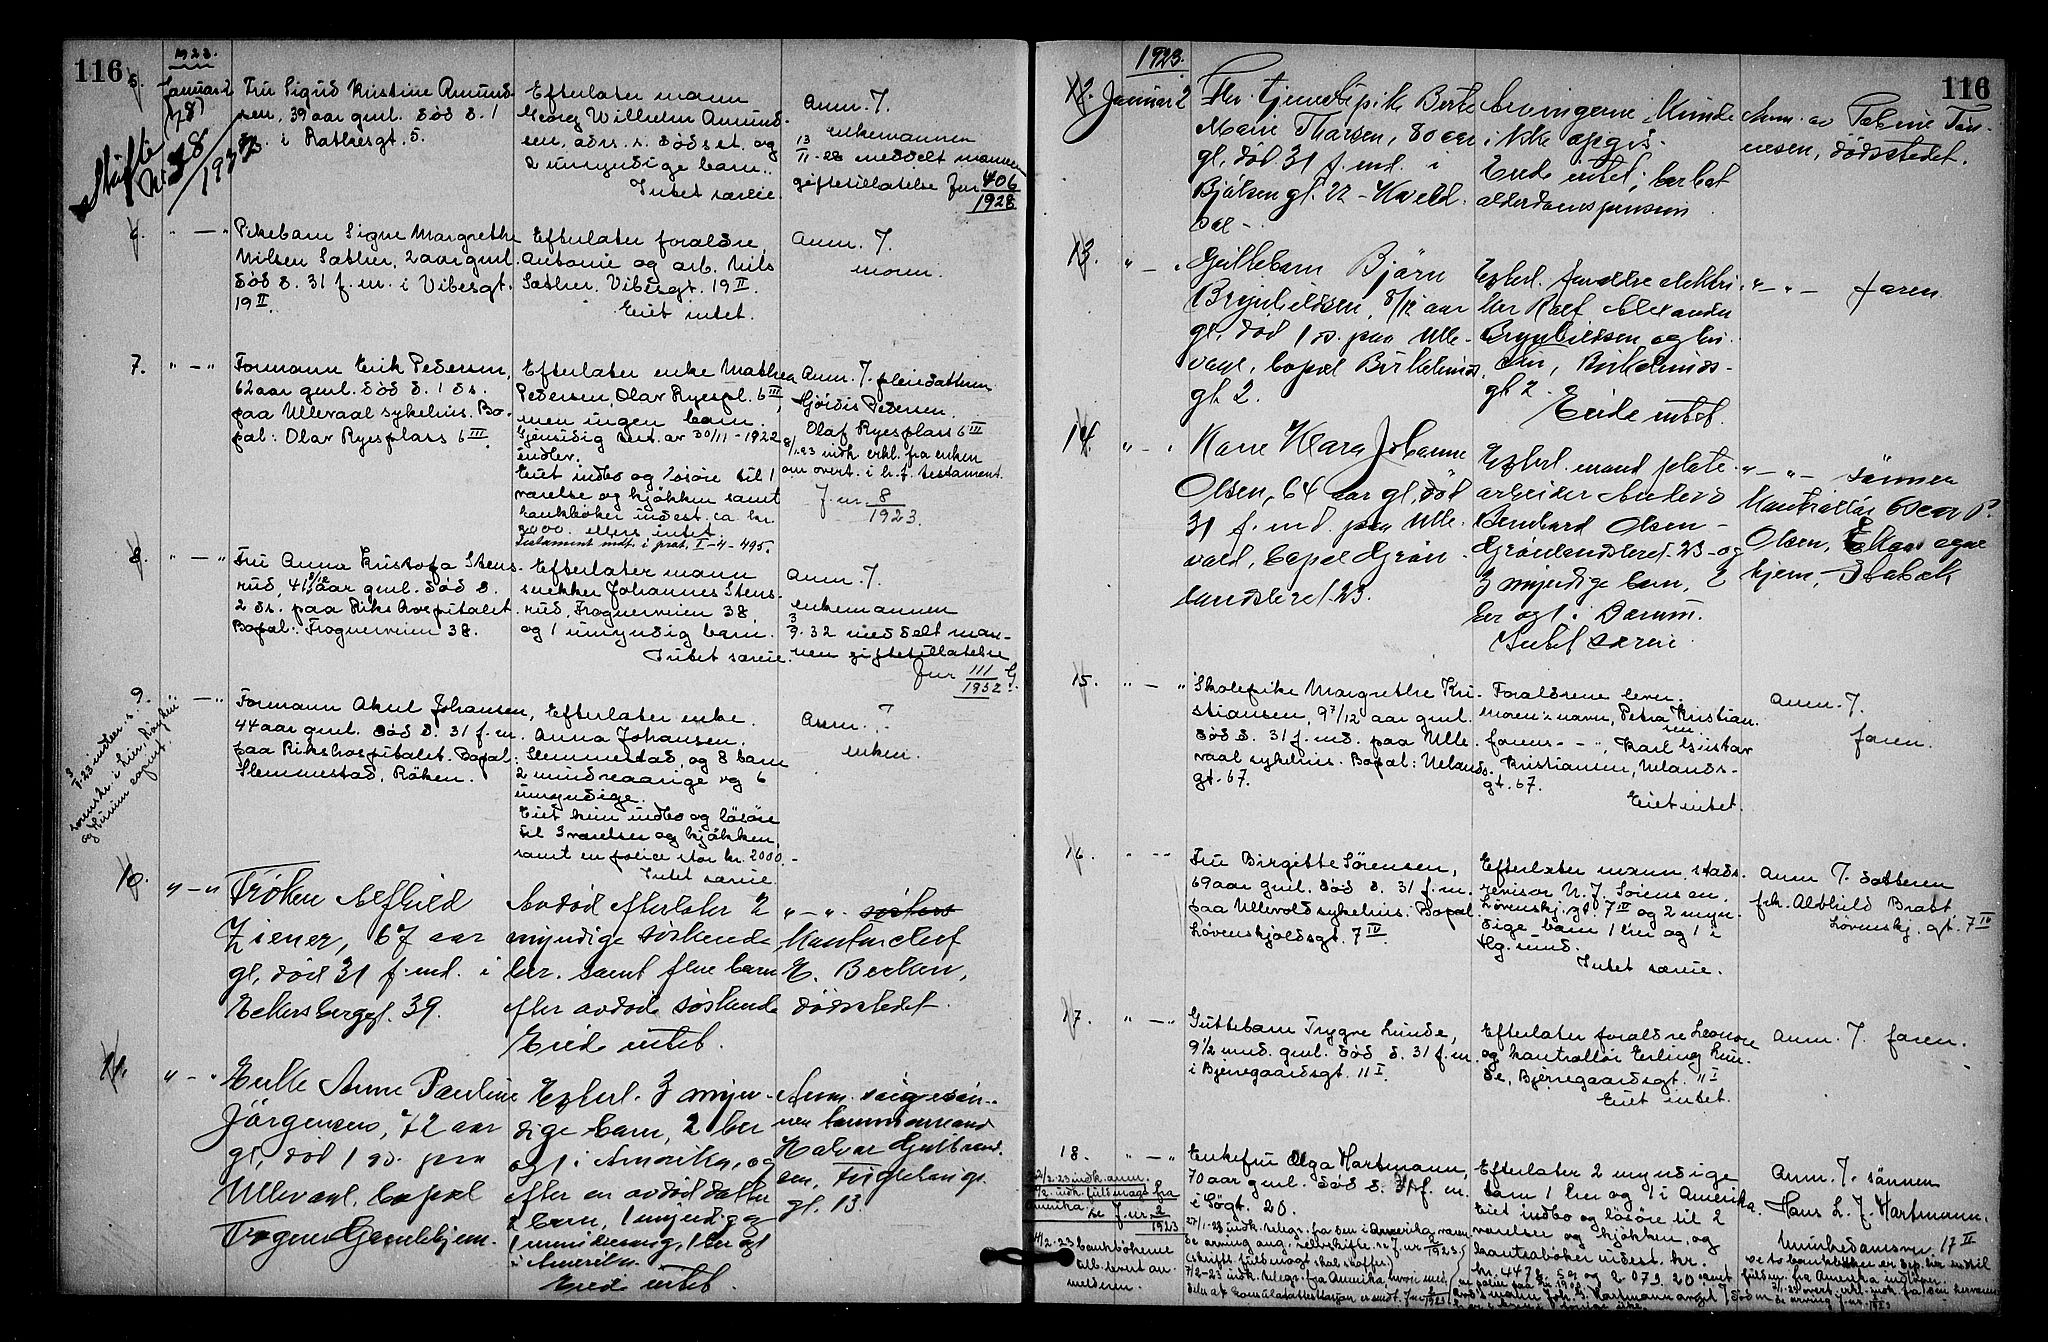 116
1923.
5. Januar 2
Fru Sigrid Kristine Amund-
sen, 39 aar gml. död d. 1
ds. i Rathkesgt. 5.
Efterlater mann
Georg Wilhelm Amund-
sen, adrs. s. dödsst. og
2 umyndige barn.
Intet særeie.
Anm. J.
enkemannen
13/11-28 meddelt mannen
giftetillatelse Jnr 406/1928
Skifte
Nr. 38/1937
6. " — "
Pikebarn Signe Margrethe
Nilsen Sæther, 2 aar gml.
död d. 31 f. m. i Vibesgt.
19 II.
Efterlater foraldre
Antonie og arb. Nils
Sæther, Vibesgt. 19 II.
Eiet intet.
Anm. J.
moren.
7. " — "
Formann Erik Pedersen,
62 aar gml. död d. 1 ds.
paa Ullevaal sykehus. Bo-
pal: Olav Ryesplass 6 III.
Efterlater enke Mathea
Pedersen, Olav Ryespl. 6 III,
men ingen barn.
Gjensidig test. av 30/11-1922
indlev.
Eiet indbo og lösöre til 1
værelse og kjökken samt
bankböker indest. ca. kr.
2000. ellers intet.
Testament indt. i prot. I-4-495.
Anm. J. pleiedatteren
Hjördis Pedersen.
Olaf Ryesplass 6 III
8/1.23 indk. erkl. fra enken
om overt. i h. t. testament.
J. nr. 8/1923.
8. " — "
Fru Anna Kristofa Stens-
rud, 41 aar gml. död d.
2 ds. paa Rikshospitalet.
Bopal: Frognerveien 38.
Efterlater mann
snekker Johannes Stens-
rud, Frognerveien 38,
og 1 umyndig barn.
Intet særeie.
Anm. J.
enkemannen
3/9.32 meddelt man-
nen giftetillatelse
Jnr 111/1932 G.
9. " — "
Formann Aksel Johansen,
44 aar gml. död d. 31 f. m.
paa Rikshospitalet. Bopal:
Slemmestad, Röken.
Efterlater enke.
Anna Johansen,
Slemmestad, og 8 barn
2 mindreaarige og 6
umyndige.
Eiet kun indbo og lösöre
til 3 værelser og kjökken,
samt en police stor kr. 2000.-
Intet særeie.
Anm. J.
enken.
10. " — "
Fröken Alfhild
Ziener, 67 aar
gl., död 31 f. md. i
Eckersbergsgt. 39.
Avdöd efterlater 2
myndige söskende
her. samt flere barn
efter avdöde söskende
Eiede intet.
" — " sösters
Kontorchef
E. Becken,
dödsstedet.
11. " — "
Enke Anne Pauline
Jörgensen, 72 aar
gl., död 1 ds. paa
Ullevaal, bopal
Frogner Gamlehjem.
Efterl. 3 myn-
dige barn, 2 her
og 1 i Amerika, og
efter en avdöd datter
2 barn, 1 myndig og
1 umyndig, 1 her og 1
i Amerika.
Eiede intet.
Anm. svigersön-
nen
Halvor Gulbrand-
sen,
gt. 13.
116
1923.
12. Januar 2
Fhv. tjenestepike Berte
Marie Thorsen, 80 aar
gl., död 31 f. md. i
Bjölsengt. 22 -
Arvingerne kunde
ikke opgis.
Eiede intet; hadde
alderdomspension
Anm. av
dödsstedet.
13. " — "
Guttebarn Björn
Brynhildsen, 8/12 aar
gl., död 1 ds. paa Ulle-
vaal, bopal Birkelunds-
gt 2.
Efterl. foraldre elektri-
ker Rolf Alexander
Brynhildsen og hu-
stru, Birkelunds-
gt 2.
Eiede intet.
" — " — faren
14. " — "
Kone Johanne
Olsen, 64 aar gl., död
31 f. md. paa Ulle-
vaal, bopal Grön-
landsleret 23.
Efterl. mand plate-
arbeider Anders
Bernhard Olsen -
Grönlandsleret 23 - og
3 myndige barn, 2
her og 1 i Bærum.
Intet særeie
" — " — sönnen
Kontrollör Oscar P.
Olsen, egne
hjem, Stabæk
15. " — "
Skolepike Margrethe Kri-
stiansen, 9 7/12 aar gml.
död d. 31 f. md. paa Ulle-
vaal sykehus. Bopal: Uelands-
gt. 67.
Foraldrene lever.
Moren's navn, Petra Kristian-
sen
farens - " -, Karl Gustav
Kristiansen, Uelands-
gt. 67.
Eiet intet.
Anm. J.
faren.
16. " — "
Fru Birgitte Sörensen,
69 aar gml. död d. 31 f. m.
paa Ullevold sykehus. Bopal
Lövenskjoldsgt. 7 IV.
Efterlater mann, stads-
revisor N. J. Sörensen,
Lövenskj. gt. 7 IV og 2 myn-
dige barn 1 her og 1 i
Intet særeie.
Anm. J. datteren
frk. Alvhild Bratt
Lövenskj. gt. 7 IV
17. " — "
Guttebarn Trygve Lunde,
9 1/2 mnd. gml. död d. 31 f. m.
i Bjerregaardsgt. 11 I.
Efterlater foraldre Leonore
og kontrollör Erling Lun-
de, Bjerregaardsgt. 11 I
Eiet intet.
Anm. J. faren.
18. " — "
Enkefru Olga Hartmann,
70 aar gml. död d. 31 f. m.
i Lögt. 20.
Efterlater 2 myndige
barn 1 her og 1 i Amerika.
Eiet indbo og lösöre til 2
værelser og kjökken, og
kontraböker indest. kr.
Anm. J. sönnen
Hans L. J. Hartmann.
Munkedamsvn. 17 II
14/2.23 bankbökerne
tilb. levert an-
melderen.